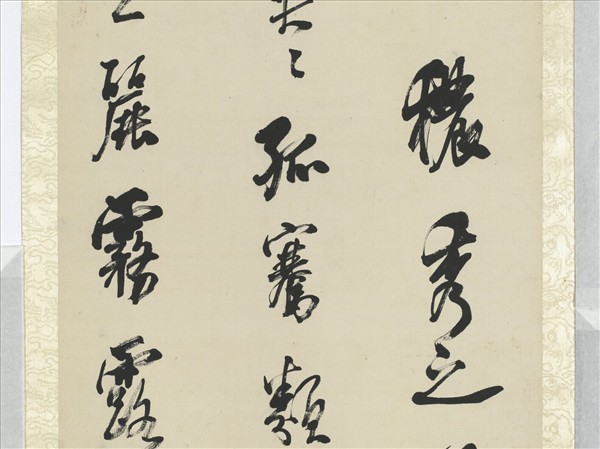 穠秀之
々孤騫類
麗霧露